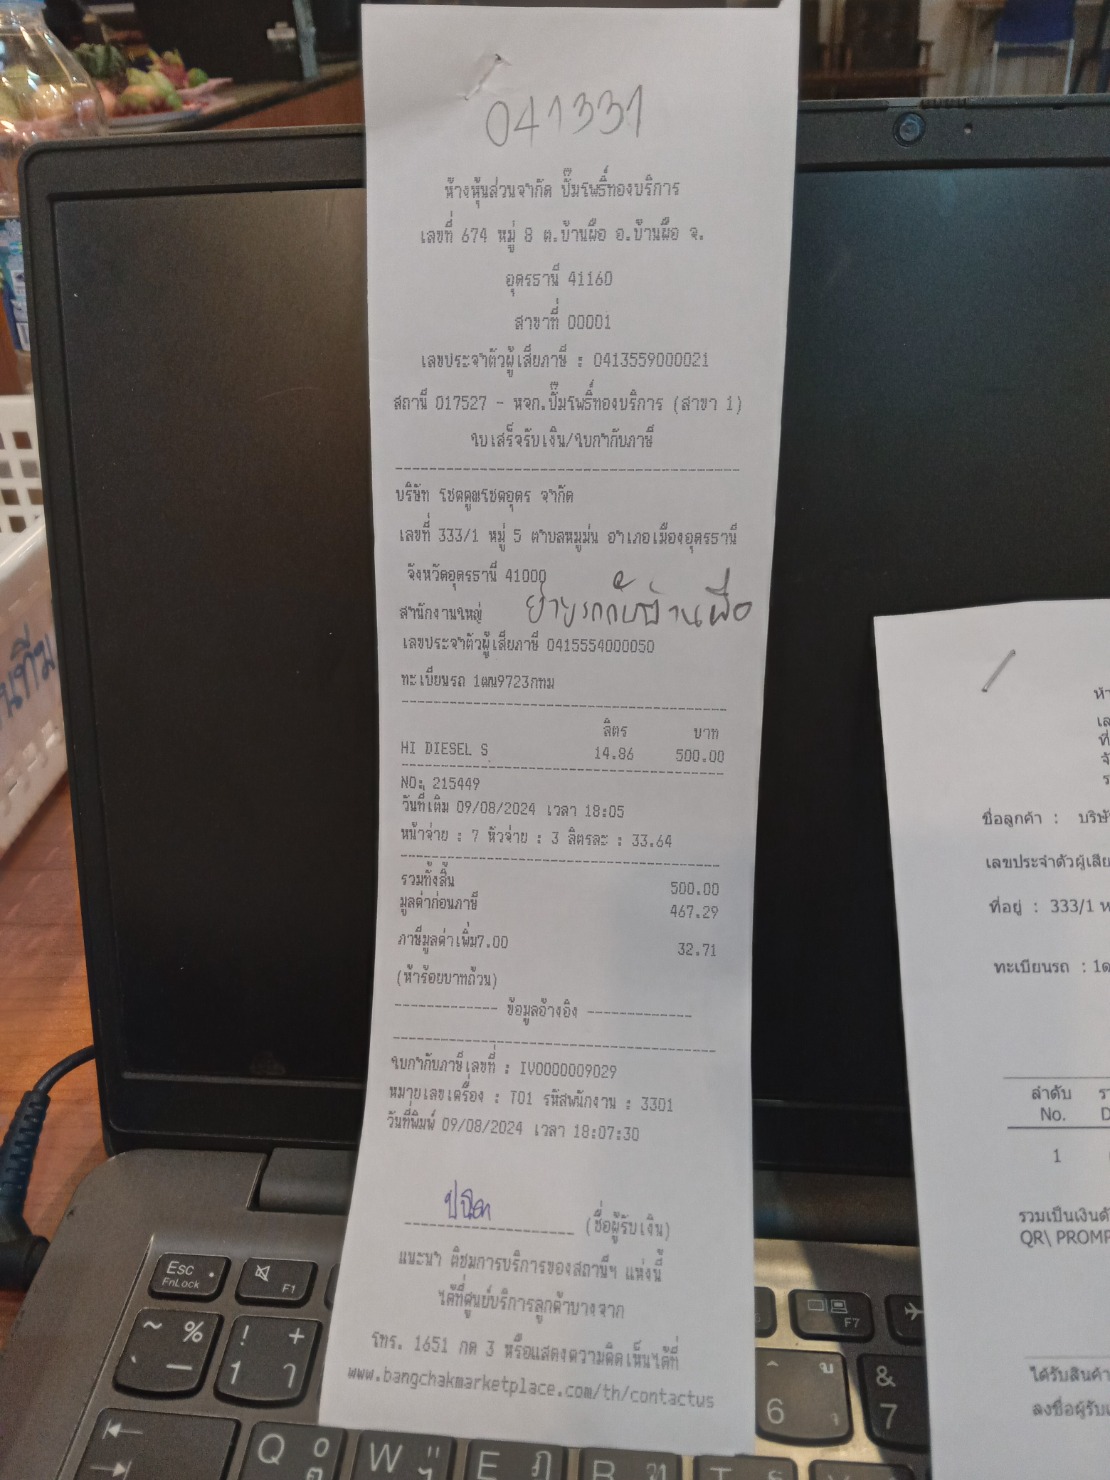 041331
ห้างหุ้นส่วนจำกัด ปั๊มโพธิ์ทองบริการ
เลขที่ 674 หมู่ 8 ต.บ้านผือ อ.บ้านผือ จ.
อุดรธานี 41160
สาขาที่ 00001
เลขประจำตัวผู้เสียภาษี : 0413559000021
สถานี 017527 - หจก.ปั๊มโพธิ์ทองบริการ (สาขา 1)
ใบเสร็จรับเงิน/ใบกำกับภาษี
บริษัท โชคคูณโชคอุดร จำกัด
เลขที่ 333/1 หมู่ 5 ตำบลหมูม่น อำเภอเมืองอุดรธานี
จังหวัดอุดรธานี 41000
สำนักงานใหญ่ ย้ายรถกับบ้านผือ
เลขประจำตัวผู้เสียภาษี 0415554000050
ทะเบียนรถ 1ฒน9723กทม
ลิตร บาท
HI DIESEL S 14.86 500.00
NO: 215449
วันที่เติม 09/08/2024 เวลา 18:05
หน้าจ่าย : 7 หัวจ่าย : 3 ลิตรละ : 33.64
รวมทั้งสิ้น 500.00
มูลค่าก่อนภาษี 467.29
ภาษีมูลค่าเพิ่ม7.00 32.71
(ห้าร้อยบาทถ้วน)
------------- ข้อมูลอ้างอิง -------------
ใบกำกับภาษีเลขที่ : IV0000009029
หมายเลขเครื่อง : T01 รหัสพนักงาน : 3301
วันที่พิมพ์ 09/08/2024 เวลา 18:07:30
(ชื่อผู้รับเงิน)
แนะนำ ติชมการบริการของสถานีฯ แห่งนี้
ได้ที่ศูนย์บริการลูกค้าบางจาก
โทร. 1651 กด 3 หรือแสดงความคิดเห็นได้ที่
www.bangchakmarketplace.com/th/contactus
ชื่อลูกค้า : บริษั
เลขประจำตัวผู้เสีย
ที่อยู่ : 333/1 ห
ทะเบียนรถ : 1ฒ
ลำดับ
No.
1
รวมเป็นเงิน
QR\ PROMP
ได้รับสินค้า
ลงชื่อผู้รับ
Esc
FnLock
F1
F7
~ %
! +
1
6
&
7
Q
W
E
R
T